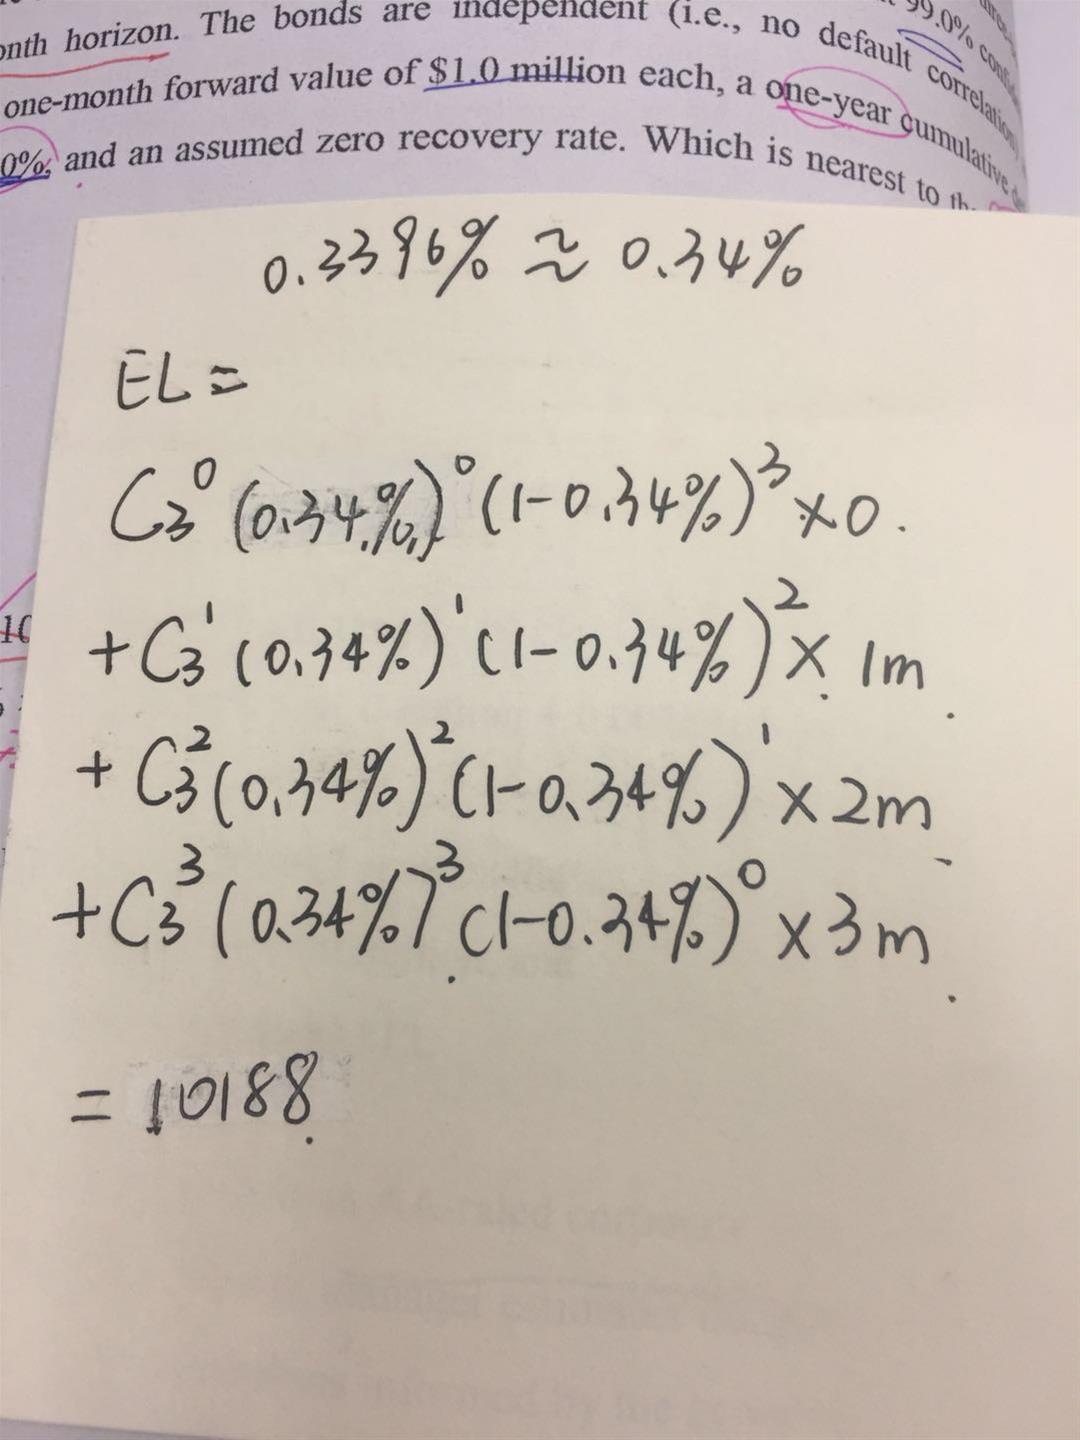 99.0%
onth horizon. The bonds are independent (i.e., no default correlation
one-month forward value of $1.0 million each, a one-year cumulative
0%, and an assumed zero recovery rate. Which is nearest to
0.3396% ≈ 0.34%
EL =
C₃⁰ (0.34%)⁰ (1-0.34%)³ × 0.
+ C₃¹ (0.34%)¹ (1-0.34%)² × 1m
+ C₃² (0.34%)² (1-0.34%)¹ × 2m
+ C₃³ (0.34%)³ (1-0.34%)⁰ × 3m
= 10188